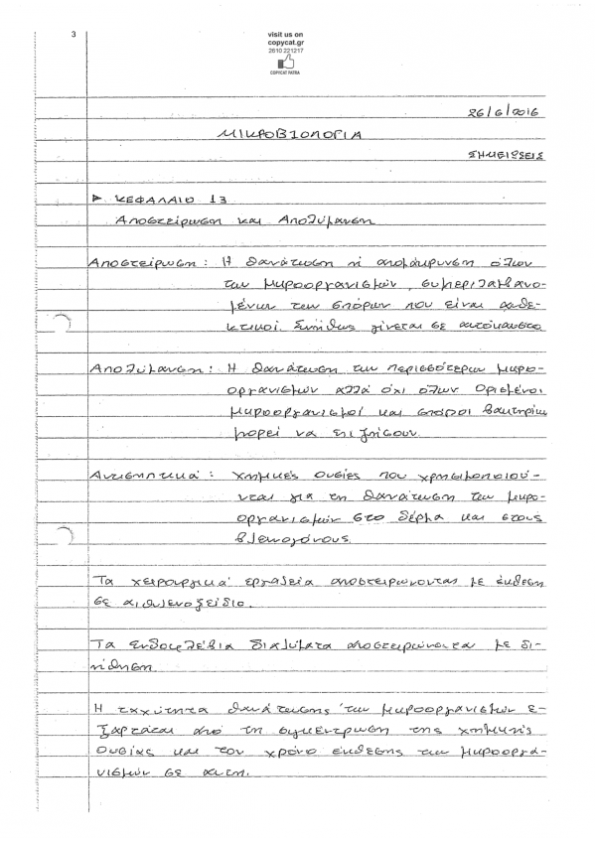 3
visit us on
copycat.gr
2610 221217
COPYCAT PATRA
26/6/2016
ΜΙΚΡΟΒΙΟΛΟΓΙΑ
ΣΗΜΕΙΩΣΕΙΣ
➤ ΚΕΦΑΛΑΙΟ 13
Αποστείρωση και Απολύμανση
Αποστείρωση : Η θανάτωση ή απομάκρυνση όλων
των μικροοργανισμών, συμπεριλαμβανο-
μένων των σπόρων που είναι ανθε-
κτικοί. Συνήθως γίνεται σε αυτόκαυστο
Απολύμανση : Η θανάτωση των περισσότερων μικρο-
οργανισμών αλλά όχι όλων. Ορισμένοι
μικροοργανισμοί και σπόροι βακτηρίων
μπορεί να επιζήσουν.
Αντισηπτικά : χημικές ουσίες που χρησιμοποιού-
νται για τη θανάτωση των μικρο-
οργανισμών στο δέρμα και στους
βλεννογόνους.
Τα χειρουργικά εργαλεία αποστειρώνονται με έκθεση
σε αιθυλενοξείδιο.
Τα ενδοφλέβια διαλύματα αποστειρώνονται με δι-
ήθηση
Η ταχύτητα θανάτωσης των μικροοργανισμών ε-
ξαρτάται από τη συγκέντρωση της χημικής
ουσίας και τον χρόνο έκθεσης των μικροοργα-
νισμών σε αυτή.